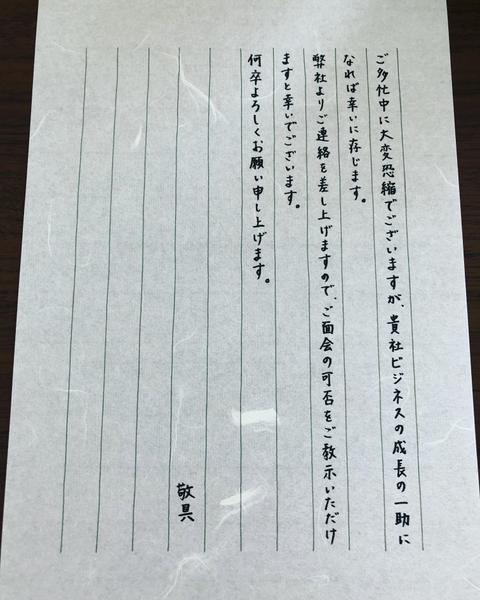 ご多忙中に大変恐縮でございますが、貴社ビジネスの成長の一助に
なれば幸いに存じます。
弊社よりご連絡を差し上げますので、ご面会の可否をご教示いただけ
ますと幸いでございます。
何卒よろしくお願い申し上げます。
敬具